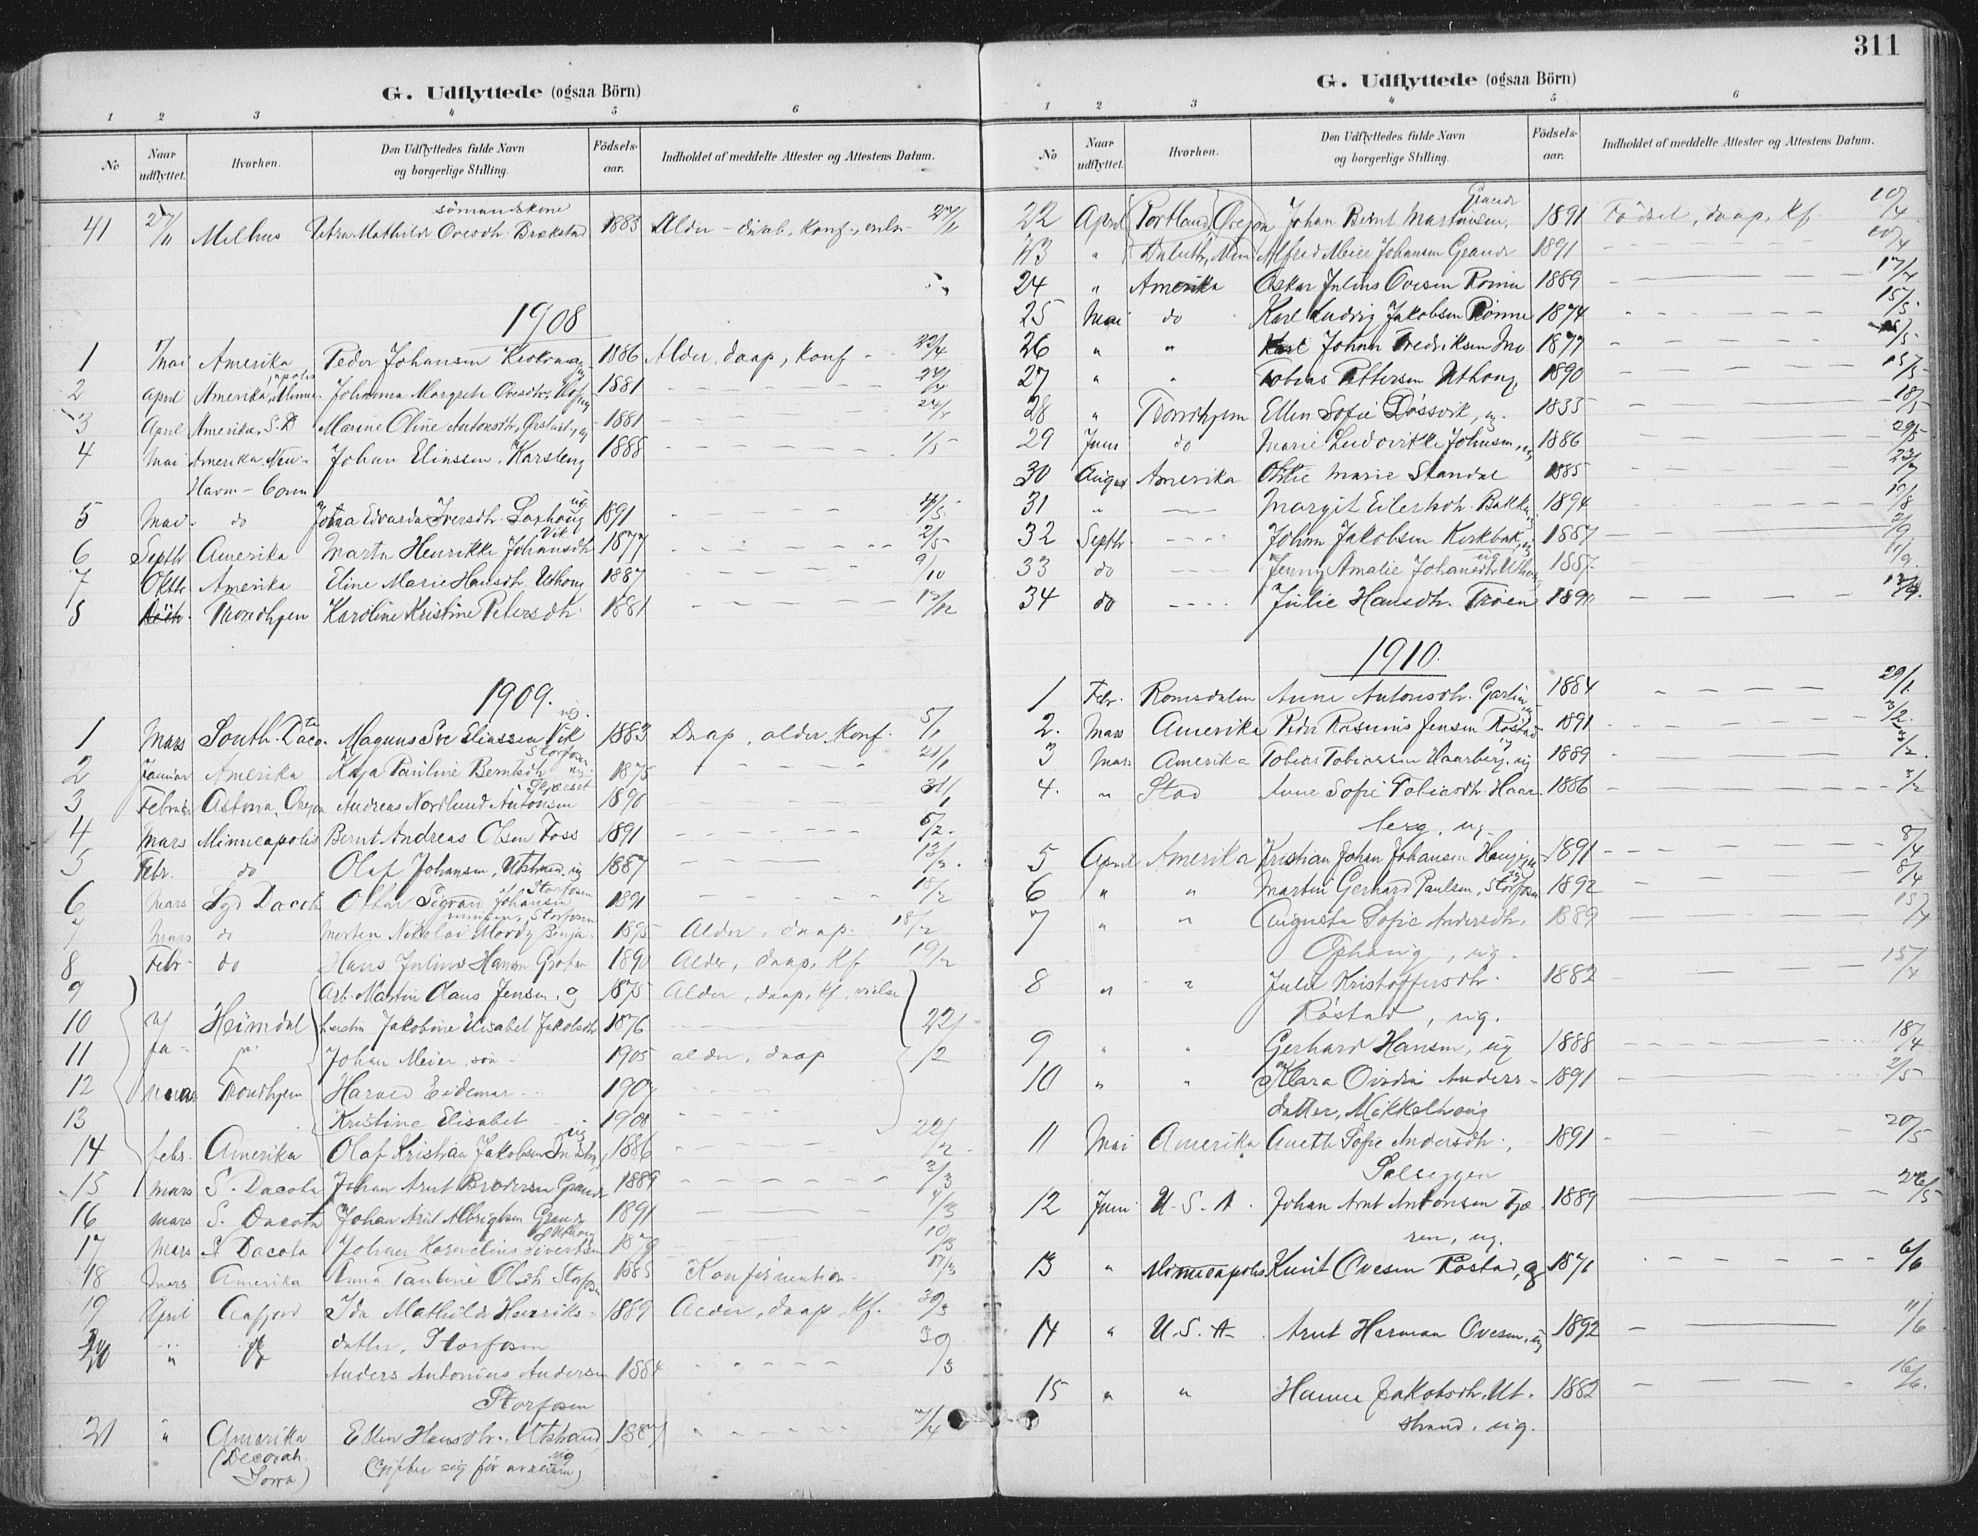 311
G. Udflyttede (ogsaa Börn)
1 2 3 4 5 6
No Naar udflyttet. Hvorhen. Den Udflyttedes fulde Navn og borgerlige Stilling. Födsels-aar. Indholdet af meddelte Attester og Attestens Datum.
sömandskone
41 27/11 Melhus Petra Mathilde Ovesdtr. Brekstad 1883 Alder - daab, konf., 27/11
1908
1 Mai Amerika Peder Johansen 1886 Alder, daap, konf - 22/4
2 April Amerika, Minneapolis Johanna Margrete Ovesdtr. 1881 - - - 24/4
3 April Amerika, S.D Marine Oline Antonsdtr, ug 1881 - - - 24/4
4 Mai Amerika, New- Johan Elinssen, Karsteng 1888 - - - 1/5
Havn - Conn
5 Mai - do Edvarda Iversdtr. Saxhaug ug 1891 - - - 4/5
6 Septbr Amerika Marta Henrikke Johansdtr Vik 1877 - - - 2/5
7 Oktbr. Amerika Eline Marie Hansdtr. Uthaug 1887 - - - 9/10
8 Trondhjem Karoline Kristine Petersdtr. 1881 - - - 12/12
1909.
1 Mars South. Dacota Magnus Elinssen Vik ug. 1883 Daap, alder, konf. 5/1
2 Januar Amerika Kaja Pauline Berntsdtr Storfosen ug. 1875 - - - 21/1
3 Februar Astoria, Oregon Andreas Nordlund Antonsen 1890 - - - 31/1
4 Mars Minneapolis Bernt Andreas Olsen Foss 1891 - - - 5/2.
5 Febr. do Olaf Johansen, Utstrand, ug 1887 - - - 13/2.
6 Mars Syd Dacota Oskar Sigvard Johansen Storfosen 1891 - - - 18/2
7 Mars do Morten Nikolai Mordy Benja- minsen, Storfosen 1895 Alder, daap. 18/2
8 Febr. do Hans Julius Hansen 1890 Alder, daap, kf. 19/2
9 Arb. Martin Olaus Jensen, g 1875 Alder, daap, kf, vielse
10 Heimdal hustru Jakobine Elisabet Jakobsdtr 1876 - - - 22/2
11 Johan Meier, sön - 1905 alder, daap
12 Trondhjem Harald Eidemar - 1907 - - -
13 Kristine Elisabet 1908 - - -
14 febr. Amerika Olaf Kristian Jakobsen ug 1886 - - - 22/2
15 mars S. Dacota Johan Arnt Brodersen Grande 1889 - - - 3/3
16 mars S. Dacota Johan Arnt Albrigtsen Grande 1891 - - - 4/3
17 Mars S Dacota Johner Kornelius Sivertsen Uthaug - - - 10/3
18 Mars Amerika Anna Pauline Olsdtr Storfosen 1885 Konfirmation - 17/3
19 April Aafjord Ida Mathilde Henriks- 1889 Alder, daap, kf. 30/3
datter, Storfosen
20 " Anders Antonius Andersen 1884 - - - 30/3
Storfosen
21 " Amerika Ellen Hansdtr. Utstrand, ug 1887 - - - 7/4
(Decorah Iowa) Gifter sig för avreisen
G. Udflyttede (ogsaa Börn)
1 2 3 4 5 6
No Naar udflyttet. Hvorhen. Den Udflyttedes fulde Navn og borgerlige Stilling. Födsels-aar. Indholdet af meddelte Attester og Attestens Datum.
22 April Portland, Oregon Johan Bernt Martinsen, Grande 1891 Födsel, daap, kf. 10/4
23 " Duluth, Min Alfred Meier Johansen Grande 1891 - - - 10/4
24 " Amerika Oskar Julius Ovesen Rönne 1889 - - - 17/4
25 Mai do Karl Ludvig Jakobsen Rönne 1874 - - - 15/5
26 " " Johan Fredriksen Mo 1877 - - - 15/5
27 " " Tobias Pettersen Uthaug 1890 - - - 15/5
28 " Trondhjem Ellen Sofie Dössvik, ug. 1835 - - - 18/5
29 Juni do Marie Ludovikke Johnsen, ug 1886 - - - 29/5
30 August Amerika Marie Standal 1885 - - - 23/7
31 " - Margit Eilertsdtr. Bakken 1894 - - - 10/8
32 Septbr - Johan Jakobsen Kirkbak, ug 1887 - - - 2/9
33 do - Jenny Amalie Johansdtr Uthaug ug 1887 - - - 11/9.
34 do - Julie Hansdtr. Tröen 1890 - - -
1910.
1 Febr. Romsdalen Anne Antonsdtr. Garten, ug 1884 - - - 29/1.
2. Mars Amerika Peder Rasmus Jensen Röstad 1891 - - - 13/2.
3 Mars Amerika Tobias Tobiassen Haarberg, ug 1889 - - -
4. " Stod Anne Sofie Tobiasdtr. Haar- 1886 - - - 3/2
berg, ug.
5 April Amerika Kristian Johan Johansen 1891 - - - 8/4
6 " " Martin Gerhard Paulsen, Storfosen 1892 - - - 8/4
7 " " Augusta Sofie Andersdtr. 1889 - - - 15/4
Ophaug, ug.
8 " " Julie Kristoffersdtr. 1882 - - - 15/4
Röstad, ug.
9 " " Gerhard Hansen, ug 1888 - - - 18/4
10 " " Klara Ovidia Anders- 1891 - - - 2/5
datter, Mikkelhaug
11 Mai Amerika Aneth Sofie Andersdtr., 1891 - - - 20/5
Selseggen
12 Juni U.S.A. Johan Arnt Antonsen Tjæ- 1889 - - - 26/5
ren, ug.
13 " Minneapolis Knut Ovesen Röstad, g 1871 - - - 6/6
14 " U.S.A. Arnt Herman Ovesen, ug 1892 - - - 11/6
15 " " Hanna Jakobsdtr. Ut- 1882 - - - 16/6.
strand, ug.